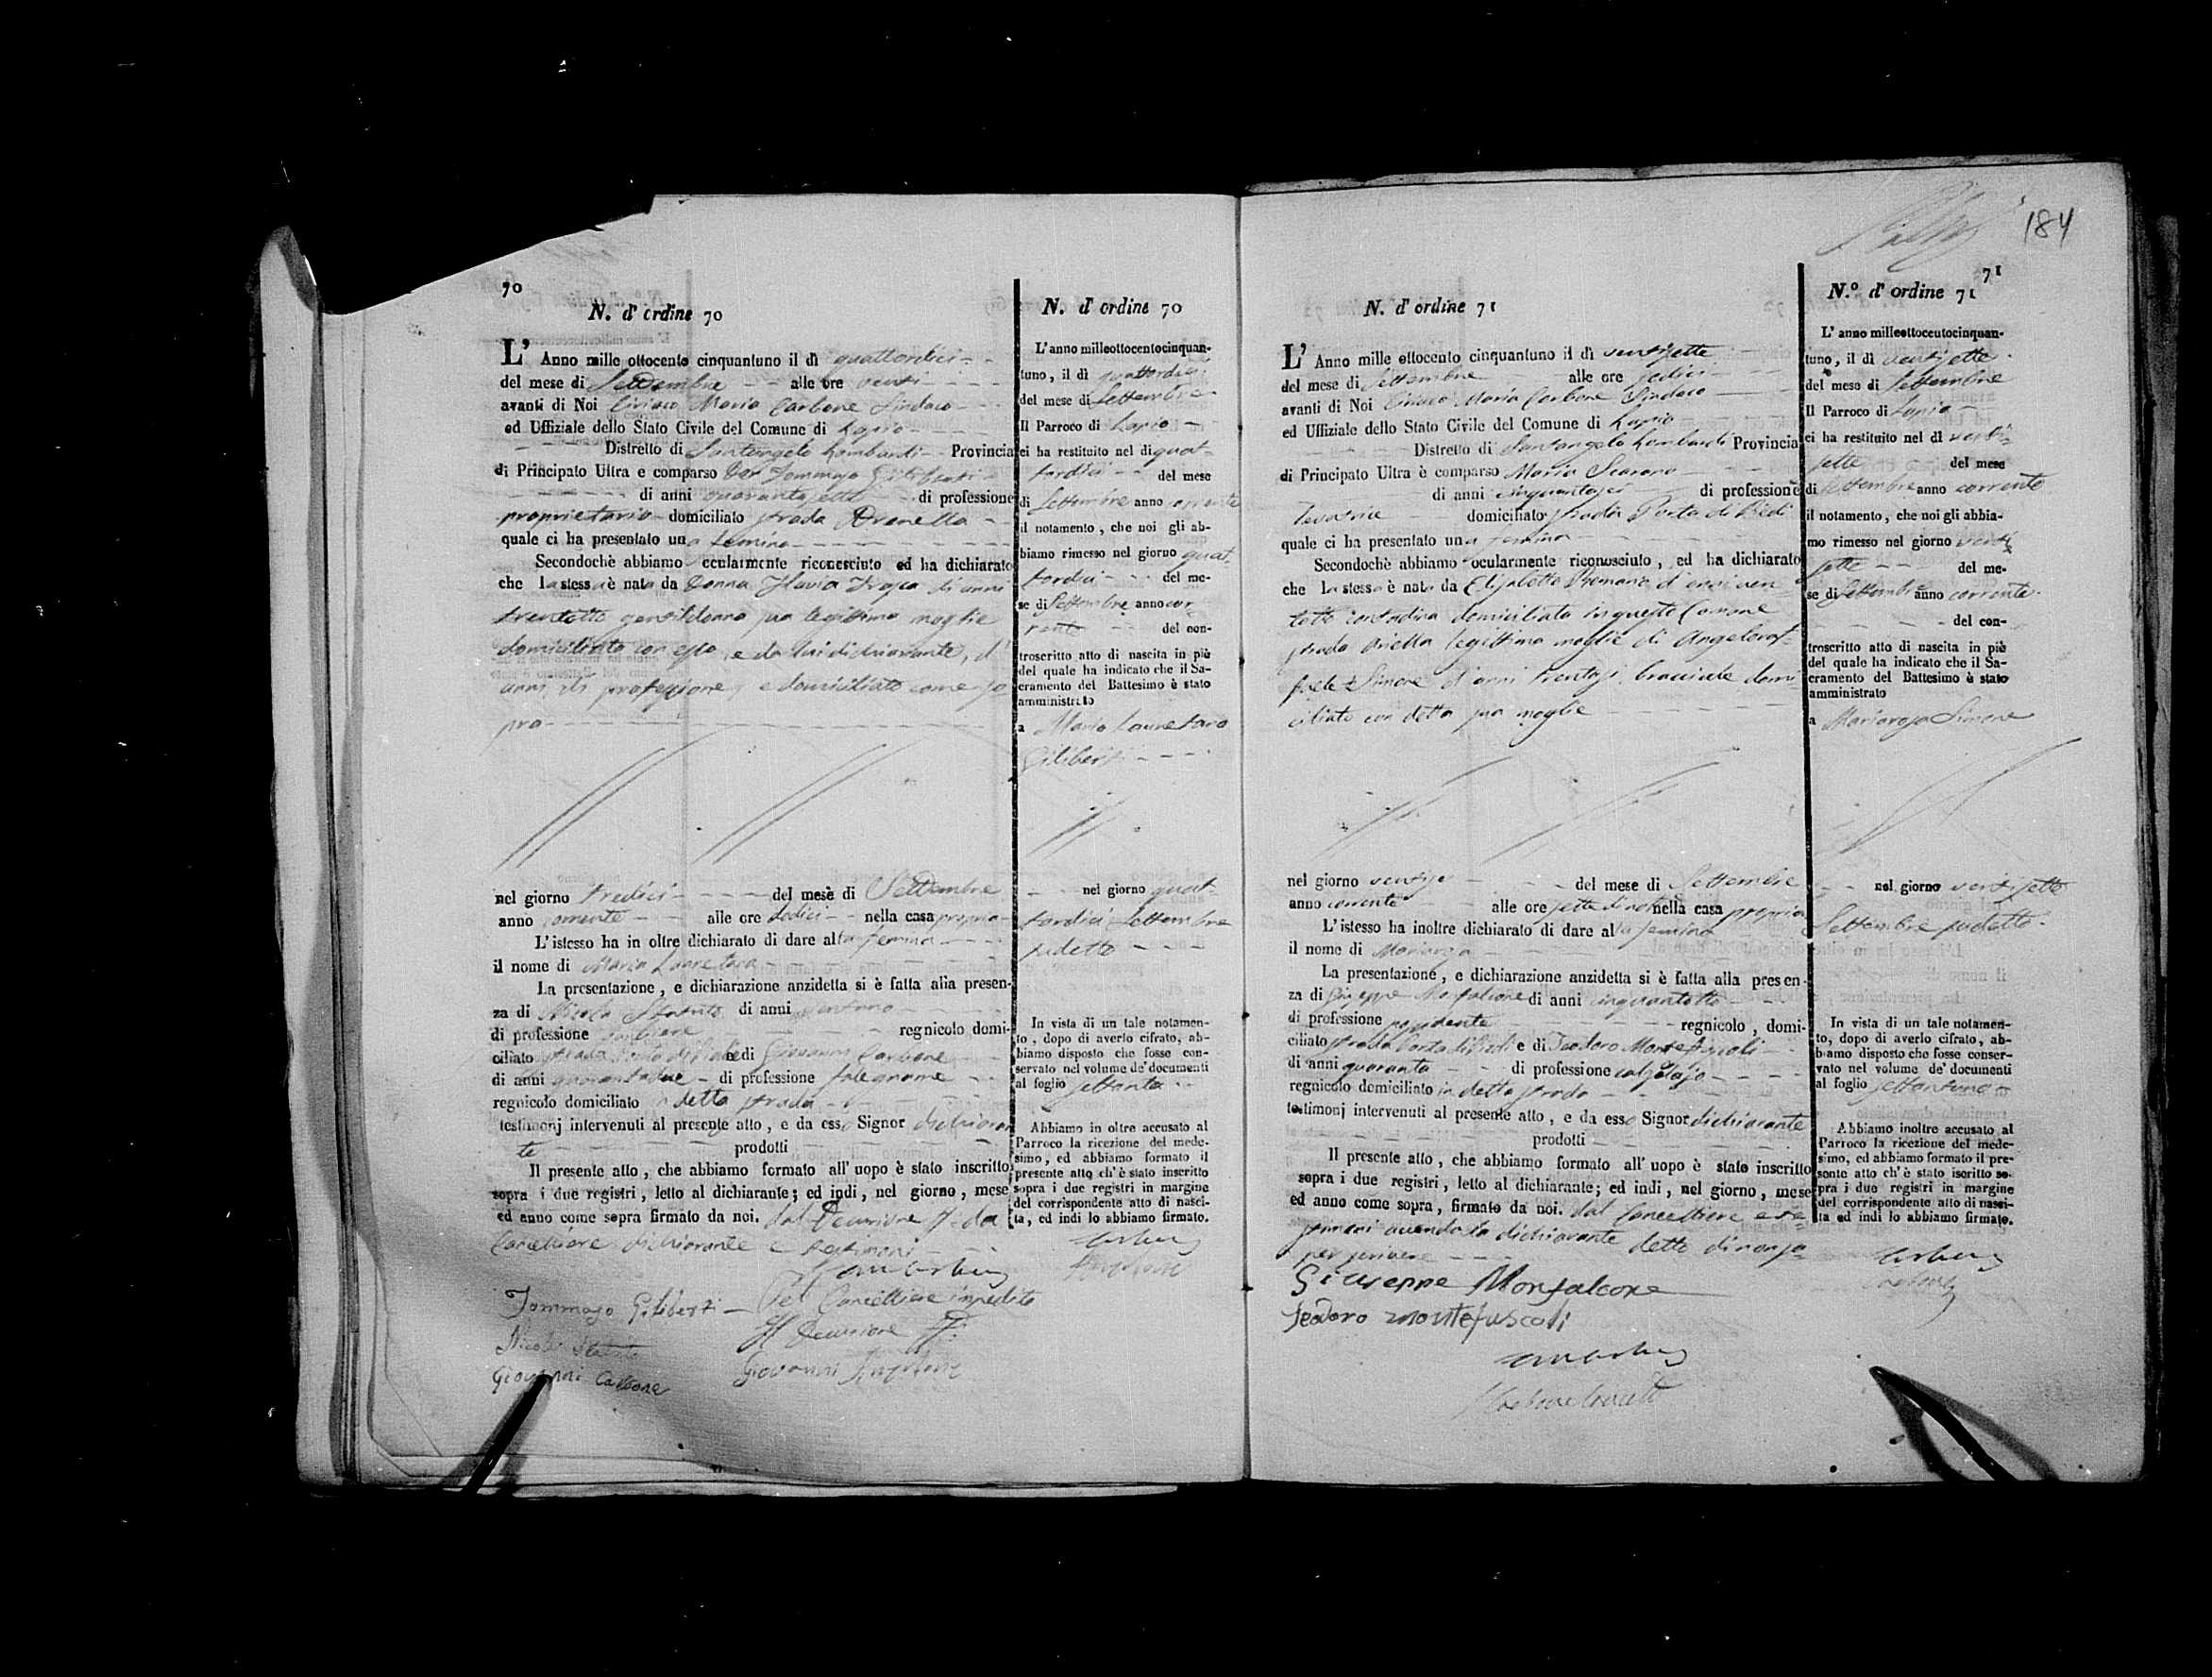 70
N. d' ordine 70
L' Anno mille ottocento cinquantuno il dì quattordici
del mese di Settembre alle ore venti
avanti di Noi Ciriaco Maria Carbone Sindaco
ed Uffiziale dello Stato Civile del Comune di Lapio
Distretto di Santangelo Lombardi Provincia
di Principato Ultra è comparso Don Tommaso Giliberti
di anni quarantasette di professione
proprietario domiciliato strada
quale ci ha presentato una femina
Secondochè abbiamo ocularmente riconosciuto ed ha dichiarato
che la stessa è nata da Donna Flavia di anni
trentotto gentildonna sua legittima moglie
domiciliata con esso, e da lui dichiarante, d'
anni, di professione, e domiciliato come so
pra
nel giorno tredici del mese di Settembre
anno corrente alle ore dodici nella casa propria
L'istesso ha in oltre dichiarato di dare alla femina
il nome di Maria Lauretana
La presentazione, e dichiarazione anzidetta si è fatta alla presen-
za di Nicola di anni
di professione regnicolo domi-
ciliato strada Porta di Piedi e di Giovanni Carbone
di anni quarantadue di professione falegname
regnicolo domiciliato detta strada
testimonj intervenuti al presente atto, e da esso Signor dichiaran
te prodotti
Il presente atto, che abbiamo formato all' uopo è stato inscritto
sopra i due registri, letto al dichiarante; ed indi, nel giorno, mese
ed anno come sopra firmato da noi. dal Decurione
Cancelliere dichiarante e testimoni
Tommaso Giliberti
Pel Cancelliere impedito
Il Decurione
Nicola
Giovanni
Giovanni Carbone
N. d' ordine 70
L'anno milleottocentocinquan-
tuno, il dì quattordici
del mese di Settembre
Il Parroco di Lapio
ci ha restituito nel dì quat-
tordici del mese
di Settembre anno corrente
il notamento, che noi gli ab-
biamo rimesso nel giorno quat-
tordici del me-
se di Settembre anno cor
rente del con-
troscritto atto di nascita in piè
del quale ha indicato che il Sa-
cramento del Battesimo è stato
amministrato
a Maria Lauretana
Giliberti
nel giorno quat-
tordici Settembre
sudetto
In vista di un tale notamen-
to, dopo di averlo cifrato, ab-
biamo disposto che fosse con-
servato nel volume de' documenti
al foglio settanta
Abbiamo in oltre accusato al
Parroco la ricezione del mede-
simo, ed abbiamo formato il
presente atto ch'è stato inscritto
sopra i due registri in margine
del corrispondente atto di nasci-
ta, ed indi lo abbiamo firmato.
184
71
N. d' ordine 71
L' Anno mille ottocento cinquantuno il dì ventisette
del mese di Settembre alle ore sedici
avanti di Noi Ciriaco Maria Carbone Sindaco
ed Uffiziale dello Stato Civile del Comune di Lapio
Distretto di Santangelo Lombardi Provincia
di Principato Ultra è comparso Maria Scarano
di anni cinquantasei di professione
levatrice domiciliato strada Porta di Piedi
quale ci ha presentato una femina
Secondochè abbiamo ocularmente riconosciuto, ed ha dichiarato
che la stessa è nata da Elisabetta Romano d'anni ven
totto contadina domiciliata in questo Comune
strada legittima moglie di Angeloraf-
faele Simone d'anni trentasei bracciale domi
ciliato con detta sua moglie
nel giorno ventisei del mese di Settembre
anno corrente alle ore sette di notte nella casa propria
L'istesso ha inoltre dichiarato di dare alla femina
il nome di Mariarosa
La presentazione, e dichiarazione anzidetta si è fatta alla presen-
za di Giuseppe Monfalcone di anni cinquantotto
di professione possidente regnicolo, domi-
ciliato strada Porta di Piedi e di Teodoro Montefuscoli
di anni quaranta di professione calzolajo
regnicolo domiciliato in detta strada
testimonj intervenuti al presente atto, e da esso Signor dichiarante
prodotti
Il presente atto, che abbiamo formato all' uopo è stato inscritto
sopra i due registri, letto al dichiarante; ed indi, nel giorno, mese
ed anno come sopra, firmato da noi. dal Cancelliere e te-
stimoni avendo la dichiarante detto di non sa-
per scrivere
Giuseppe Monfalcone
Teodoro montefuscoli
N.º d' ordine 71
L' anno milleottocentocinquan-
tuno, il dì ventisette
del mese di Settembre
Il Parroco di Lapio
ci ha restituito nel dì venti-
sette del mese
di Settembre anno corrente
il notamento, che noi gli abbia-
mo rimesso nel giorno venti
sette del me-
se di Settembre anno corrente
del con-
troscritto atto di nascita in piè
del quale ha indicato che il Sa-
cramento del Battesimo è stato
amministrato
a Mariarosa Simone
nel giorno ventisette
Settembre sudetto
In vista di un tale notamen-
to, dopo di averlo cifrato, ab-
biamo disposto che fosse conser-
vato nel volume de' documenti
al foglio settantuno
Abbiamo inoltre accusato al
Parroco la ricezione del mede-
simo, ed abbiamo formato il pre-
sente atto ch' è stato iscritto so-
pra i due registri in margine
del corrispondente atto di nasci-
ta ed indi lo abbiamo firmato.